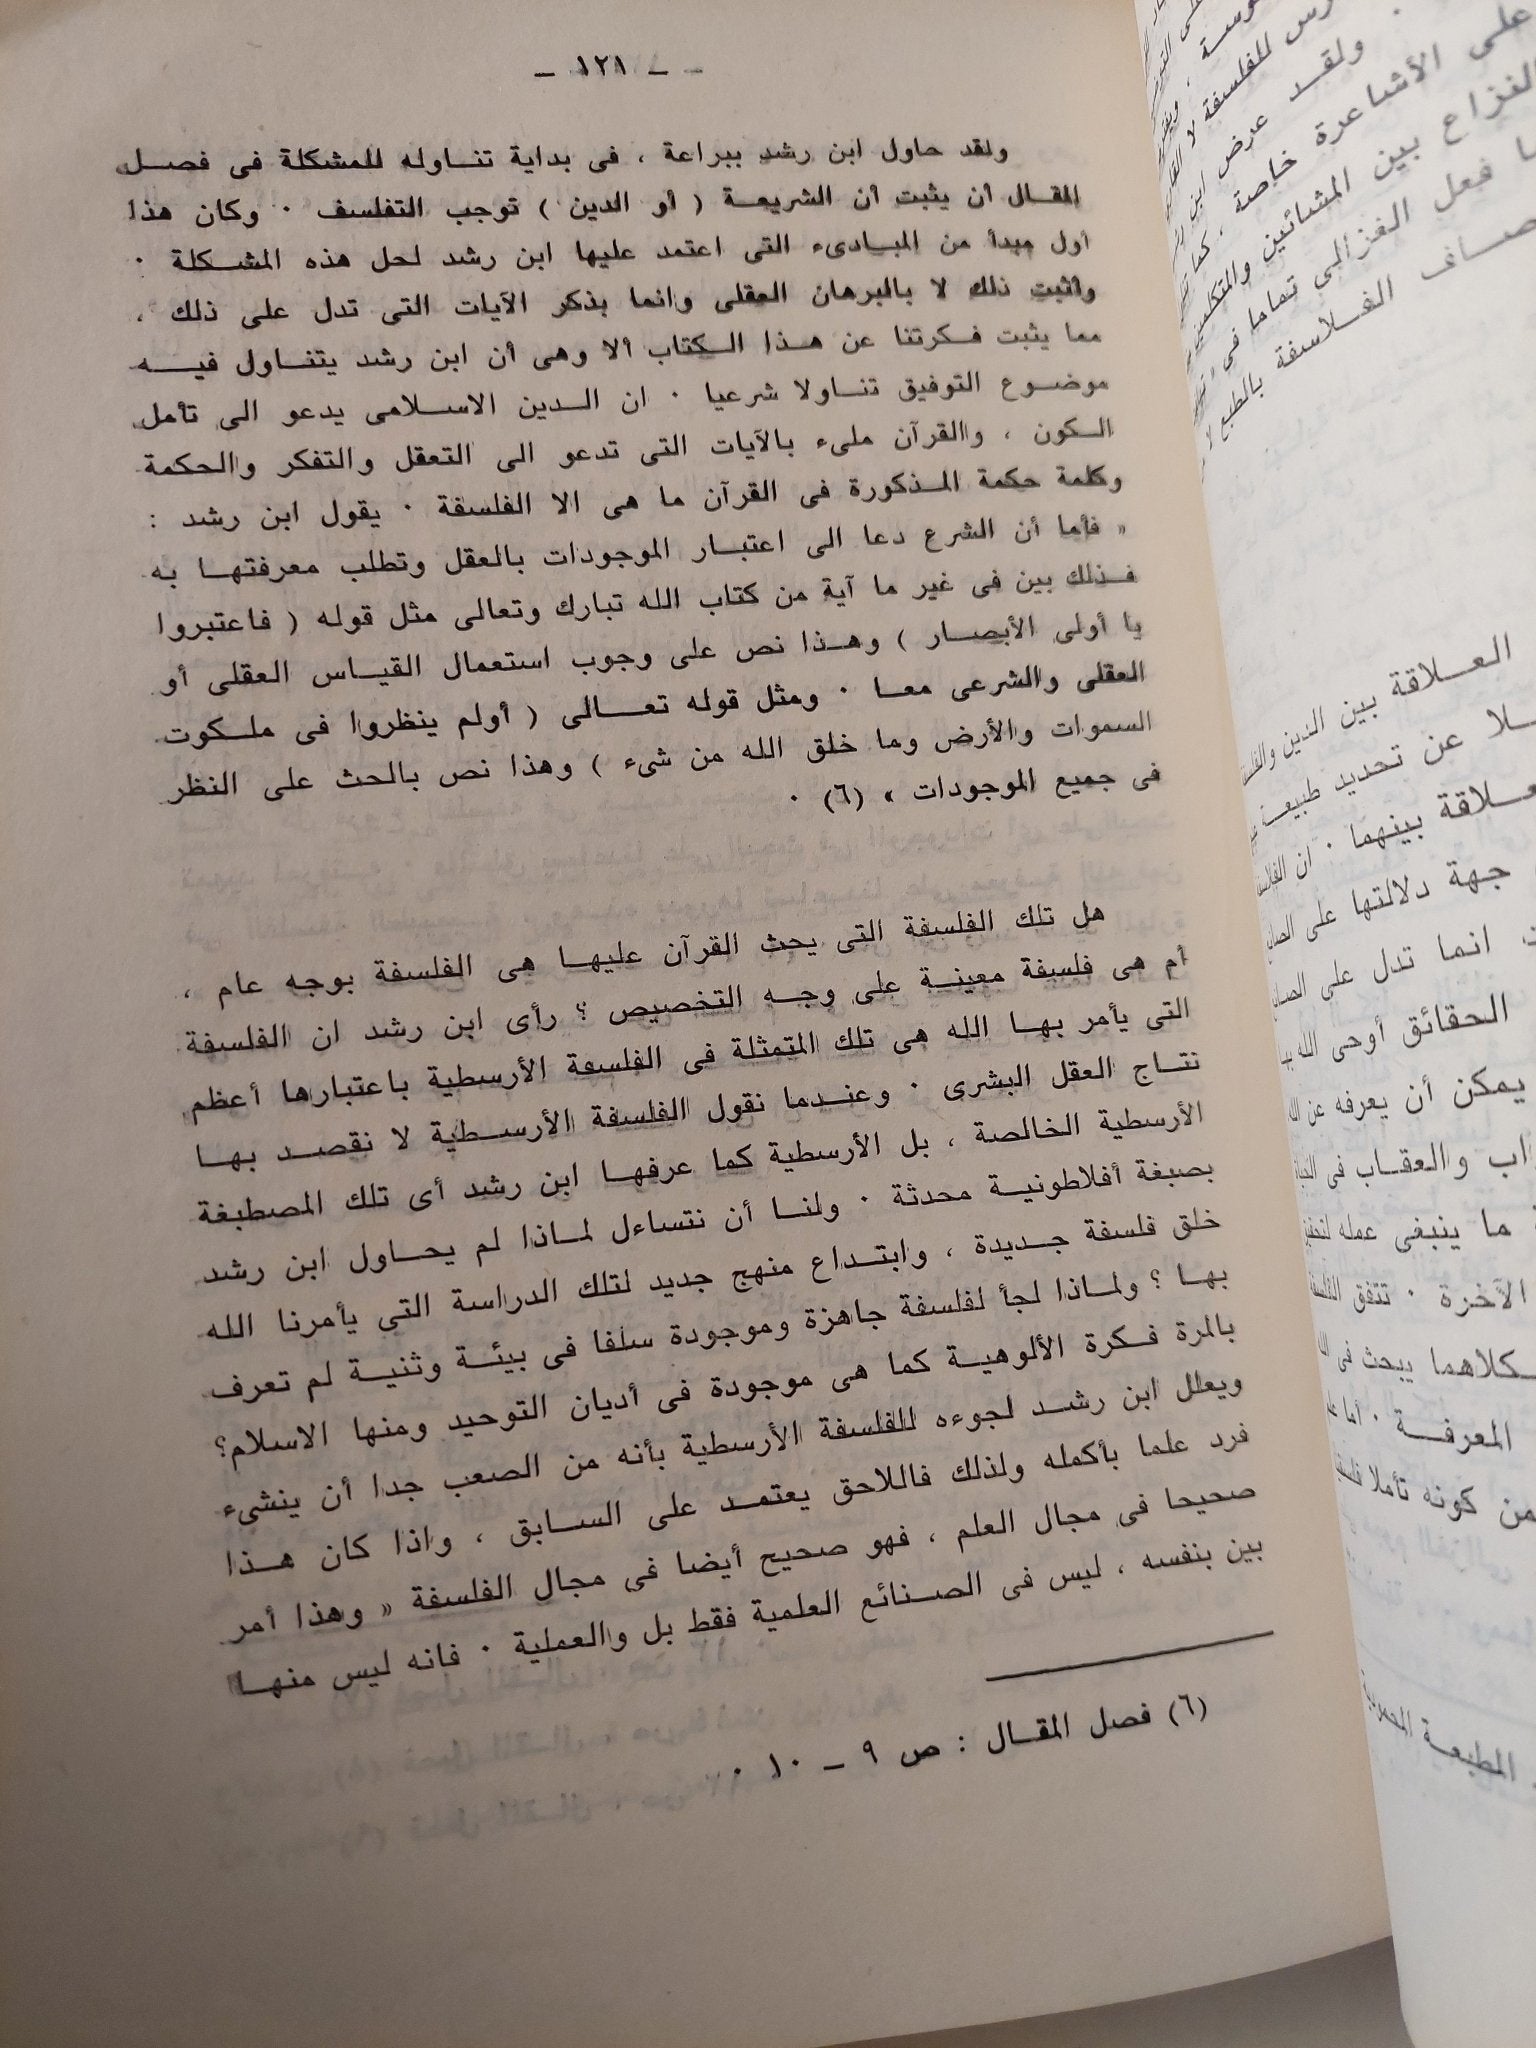 ـ ١٢١ ـ
ولقد حاول ابن رشد ببراعة ، فى بداية تناوله للمشكلة فى فصل
المقال أن يثبت أن الشريعة ( أو الدين ) توجب التفلسف ٠ وكان هذا
أول مبدأ من المبادىء التى اعتمد عليها ابن رشد لحل هذه المشكلة ٠
وأثبت ذلك لا بالبرهان العقلى وانما بذكر الآيات التى تدل على ذلك ،
مما يثبت فكرتنا عن هذا الكتاب ألا وهى أن ابن رشد يتناول فيه
موضوع التوفيق تناولا شرعيا ٠ ان الدين الاسلامى يدعو الى تأمل
الكون ، والقرآن ملىء بالآيات التى تدعو الى التعقل والتفكر والحكمة
وكلمة حكمة المذكورة فى القرآن ما هى الا الفلسفة ٠ يقول ابن رشد :
« فأما أن الشرع دعا الى اعتبار الموجودات بالعقل وتطلب معرفتها به
فذلك بين فى غير ما آية من كتاب الله تبارك وتعالى مثل قوله ( فاعتبروا
يا أولى الأبصار ) وهذا نص على وجوب استعمال القياس العقلى أو
العقلى والشرعى معا ٠ ومثل قوله تعالى ( أولم ينظروا فى ملكوت
السموات والأرض وما خلق الله من شىء ) وهذا نص بالحث على النظر
فى جميع الموجودات » (٦) ٠
هل تلك الفلسفة التى يحث القرآن عليها هى الفلسفة بوجه عام ،
أم هى فلسفة معينة على وجه التخصيص ؟ رأى ابن رشد ان الفلسفة
التى يأمر بها الله هى تلك المتمثلة فى الفلسفة الأرسطية باعتبارها أعظم
نتاج العقل البشرى ٠ وعندما نقول الفلسفة الأرسطية لا نقصد بها
الأرسطية الخالصة ، بل الأرسطية كما عرفها ابن رشد أى تلك المصطبغة
بصبغة أفلاطونية محدثة ٠ ولنا أن نتساءل لماذا لم يحاول ابن رشد
خلق فلسفة جديدة ، وابتداع منهج جديد لتلك الدراسة التى يأمرنا الله
بها ؟ ولماذا لجأ لفلسفة جاهزة وموجودة سلفا فى بيئة وثنية لم تعرف
بالمرة فكرة الألوهية كما هى موجودة فى أديان التوحيد ومنها الاسلام؟
ويعلل ابن رشد لجوءه للفلسفة الأرسطية بأنه من الصعب جدا أن ينشىء
فرد علما بأكمله ولذلك فاللاحق يعتمد على السابق ، واذا كان هذا
صحيحا فى مجال العلم ، فهو صحيح أيضا فى مجال الفلسفة « وهذا أمر
بين بنفسه ، ليس فى الصنائع العلمية فقط بل والعملية ٠ فانه ليس منها
(٦) فصل المقال : ص ٩ ــ ١٠ ٠
ولقد عرض ابن
على الأشاعرة خاصة ، كما
النزاع بين المشائين
فعل الغزالى تماما فى
الفلاسفة بالطبع لا
العلاقة بين الدين
عن تحديد طبيعة
بينهما ٠ ان
جهة دلالتها على
انما تدل على
الحقائق أوحى الله
يمكن أن يعرفه عن الله
والعقاب فى
ما ينبغى عمله
الآخرة ٠ تتفق
يبحث فى
المعرفة ٠ أما
من كونه تأملا
المطبعة